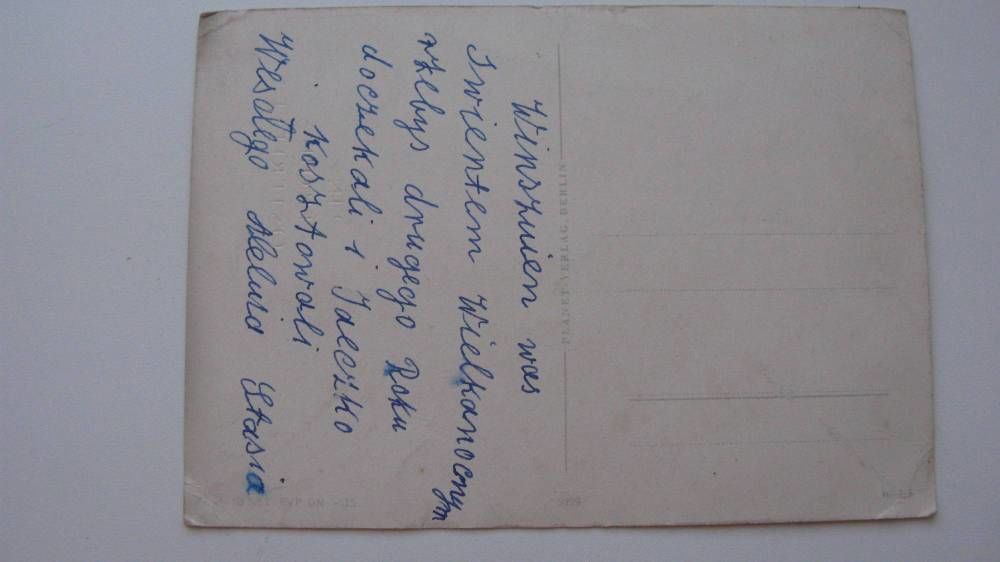 Winszuien was
Swientem Wielkanocnym
rzebys drugego Roku
doczekali i Jaeczko
kosztowali
Wesołego Aleluia Stasia
PLANET-VERLAG, BERLIN